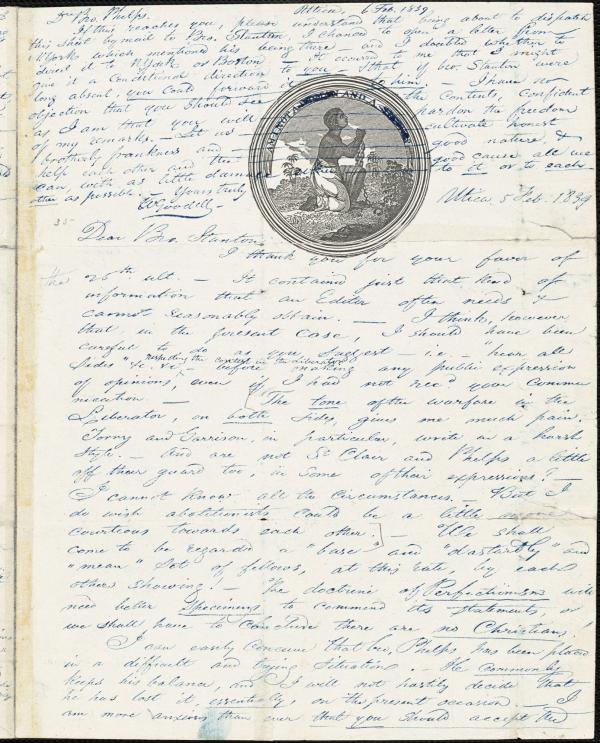 Dr Bro. Phelps. Utica, 6 Feb. 1839.
If this reaches you, please understand that being about to dispatch
this sheet by mail to Bro. Stanton, I chanced to open a letter from
NYork which mentioned his being there and I doubted whether to
direct it to NYork or Boston — It occurred to me that I might
give it a conditional direction to you, that if bro. Stanton were
long absent, you could forward it to him. — I have no
objection that you should see the contents, confident
as I am that you will pardon the freedom
of my remarks. — Let us cultivate honest
brotherly frankness and good nature, &
help each other and the good cause all we
can, with as little damage to it or to each
other as possible. Yours truly
W Goodell —
AM I NOT A MAN AND A
Utica 5 Feb. 1839
35
Dear Bro. Stanton
I thank you for your favor of
the 25th ult. — It contained just that kind of
information that an Editor often needs &
cannot reasonably obtain. — I think, however
that, in the present case, I should have been
careful to do as you suggest — i.e. — "hear all
sides" &c. &c. respecting the contest in the liberator before making any public expression
of opinions, even if I had not rec'd your commu
nication. — [The tone of the warfare in the
Liberator, on both sides, gives me much pain.
Torrey and Garrison, in particular, write in a harsh
style. — And are not St Clair and Phelps a little
off their guard too, in some of their expressions? —
I cannot know all the circumstances. — But I
do wish abolitionists could be a little
courteous towards each other.] — We shall
come to be regarded a "base" and "dastardly" and
"mean" set of fellows, at this rate, by each
others showing! — The doctrine of Perfectionism will
need better specimens to commend its statements, or
we shall have to conclude there are no Christians!
I can easily conceive that bro. Phelps has been placed
in a difficult and trying situation. — He commonly
keeps his balance, and I will not hastily decide that
he has lost it, essentially, on the present occasion — I
am more anxious than ever that you should accept the